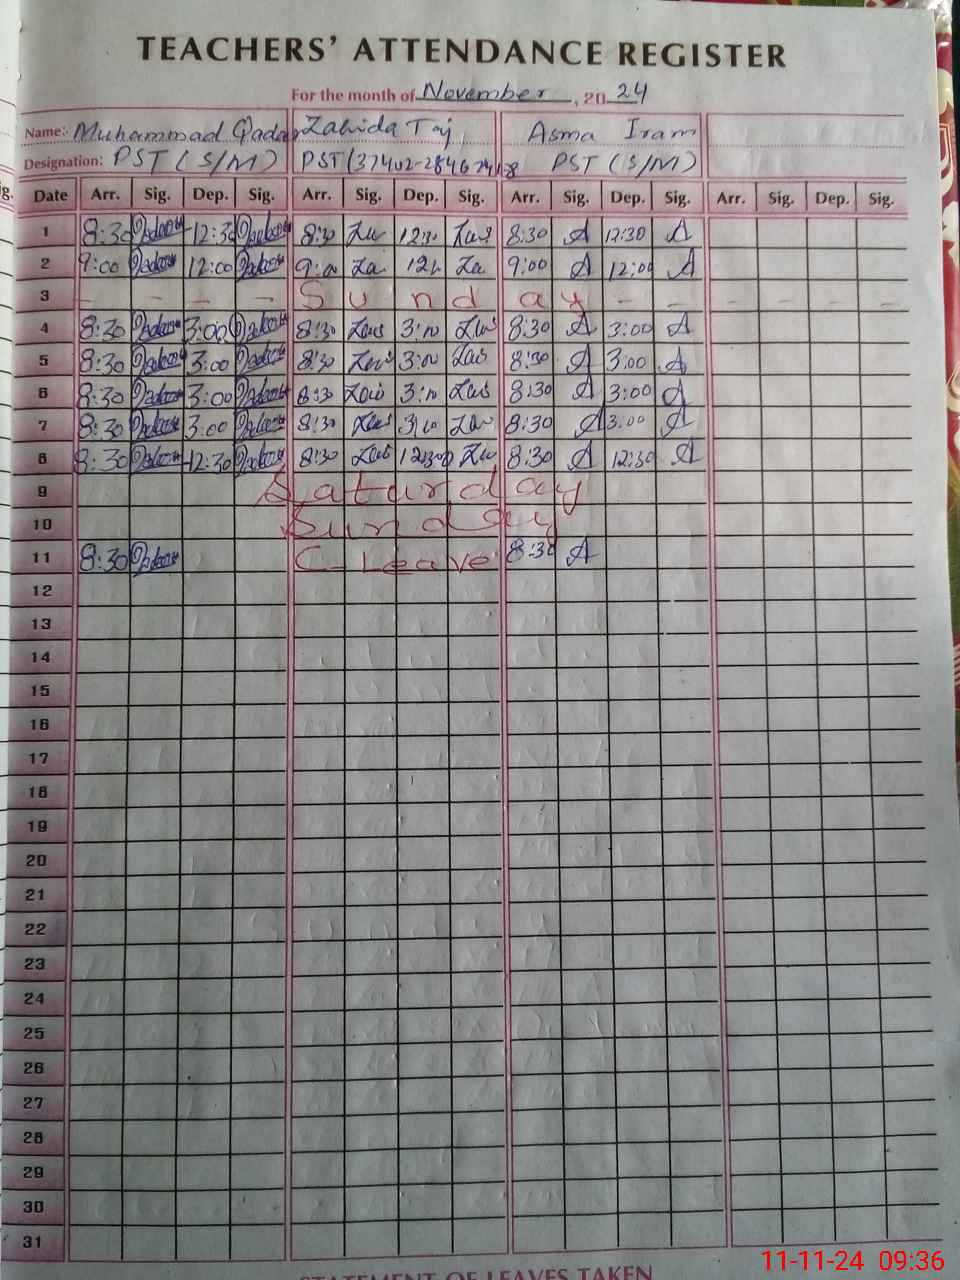 TEACHERS' ATTENDANCE REGISTER
For the month of November, 2024
Name:- Muhammad Qadar Zahida Taj Asma Iram
Designation: PST (S/M) PST (S/M)
Date Arr. Sig. Dep. Sig. Arr. Sig. Dep. Sig. Arr. Sig. Dep. Sig. Arr. Sig. Dep. Sig.
1 8:30 12:30 8:30 12:30 8:30 A 12:30 A
2 9:00 12:00 9:00 Za 12 Za 9:00 A 12:00 A
3 - - - - Sunday - - - - - -
4 8:30 3:00 8:30 3:00 8:30 A 3:00 A
5 8:30 3:00 8:30 3:00 8:30 A 3:00 A
6 8:30 3:00 8:30 3:00 8:30 A 3:00 A
7 8:30 3:00 8:30 3:00 8:30 A 3:00 A
8 8:30 12:30 8:30 12:30 8:30 A 12:30 A
9 Saturday
10 Sunday
11 8:30 C-Leave 8:30 A
12
13
14
15
16
17
18
19
20
21
22
23
24
25
26
27
28
29
30
31
STATEMENT OF LEAVES TAKEN
11-11-24 09:36